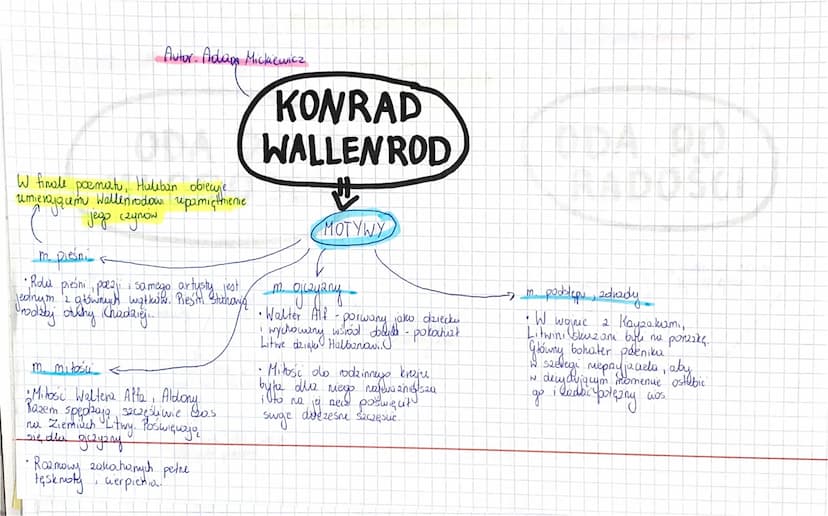 Autor. Adam Mickiewicz
KONRAD
WALLENROD
MOTYWY
W finale poematu, Halban obiecuje
umierającemu Wallenrodowi upamiętnienie
jego czynów
m. pieśni
• Rola pieśni, poezji i samego artysty jest
jednym z głównych wątków. Pieśni
rodzby otuchy
m. miłości
• Miłość Waltera Alfa i Aldony
Razem spędzają szczęśliwie czas
na Ziemiach Litwy. Poświęcają
się dla ojczyzny
• Rozmowy zakochanych pełne
tęsknoty i cierpienia.
m. ojczyzny
• Walter Alf - porwany jako dziecko
i wychowany wśród obcych - pokochał
Litwę dzięki Halbanowi.
• Miłość do rodzinnego kraju
była dla niego najważniejsza
i to na jej rzecz poświęcił
swoje doczesne szczęście.
m. podstępu, zdrady
• W wojnie z Krzyżakami,
Litwini skazani byli na porażkę.
Główny bohater przenika
w szeregi nieprzyjaciela, aby
w decydującym momencie osłabić
go i zadać potężny cios.
ODA
ODA DO
RADOŚCI